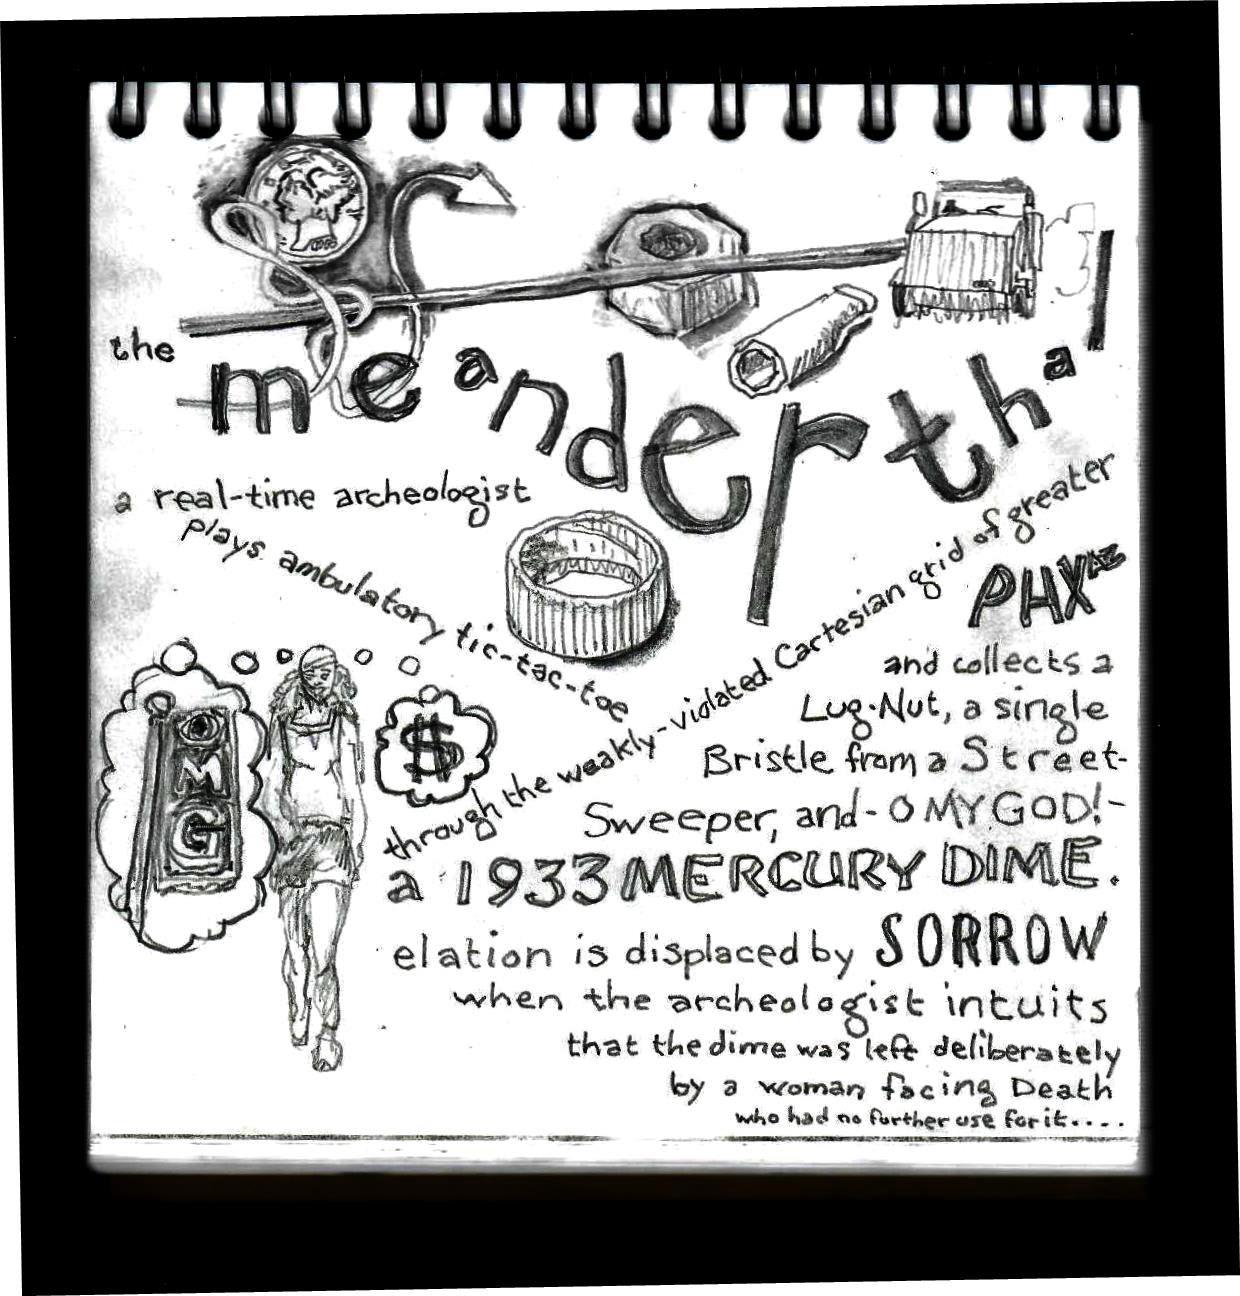 the
meanderthal
a real-time archeologist
plays ambulatory tic-tac-toe
through the weakly-violated Cartesian grid of greater
PHX AZ
and collects a
Lug-Nut, a single
Bristle from a Street-
Sweeper, and - O MY GOD! -
a 1933 MERCURY DIME.
elation is displaced by SORROW
when the archeologist intuits
that the dime was left deliberately
by a woman facing Death
who had no further use for it....
OMG
$